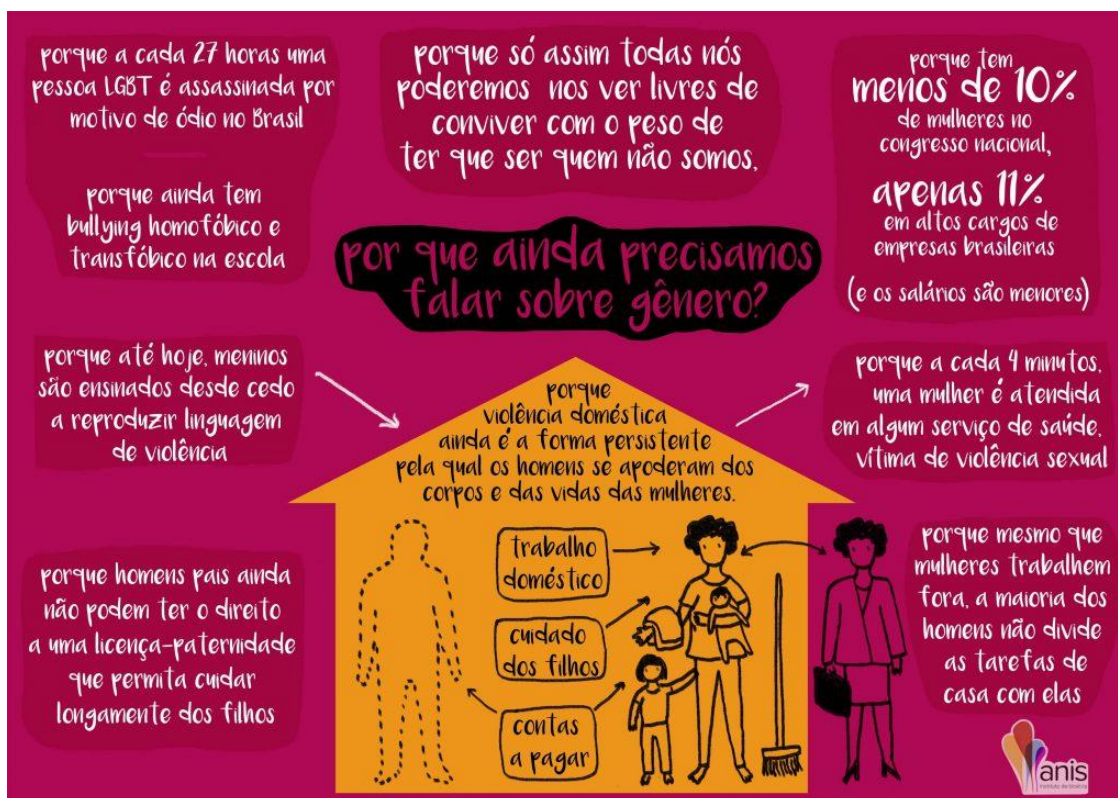 porque a cada 27 horas uma
pessoa LGBT é assassinada por
motivo de ódio no Brasil
porque ainda tem
bullying homofóbico e
transfóbico na escola
porque só assim todas nós
poderemos nos ver livres de
conviver com o peso de
ter que ser quem não somos.
porque tem
menos de 10%
de mulheres no
congresso nacional,
apenas 11%
em altos cargos de
empresas brasileiras
(e os salários são menores)
por que ainda precisamos
falar sobre gênero?
porque até hoje, meninos
são ensinados desde cedo
a reproduzir linguagem
de violência
porque
violência doméstica
ainda é a forma persistente
pela qual os homens se apoderam dos
corpos e das vidas das mulheres.
porque a cada 4 minutos,
uma mulher é atendida
em algum serviço de saúde,
vítima de violência sexual
porque homens pais ainda
não podem ter o direito
a uma licença-paternidade
que permita cuidar
longamente dos filhos
trabalho
doméstico
cuidado
dos filhos
contas
a pagar
porque mesmo que
mulheres trabalhem
fora, a maioria dos
homens não divide
as tarefas de
casa com elas
anis
instituto de bioética